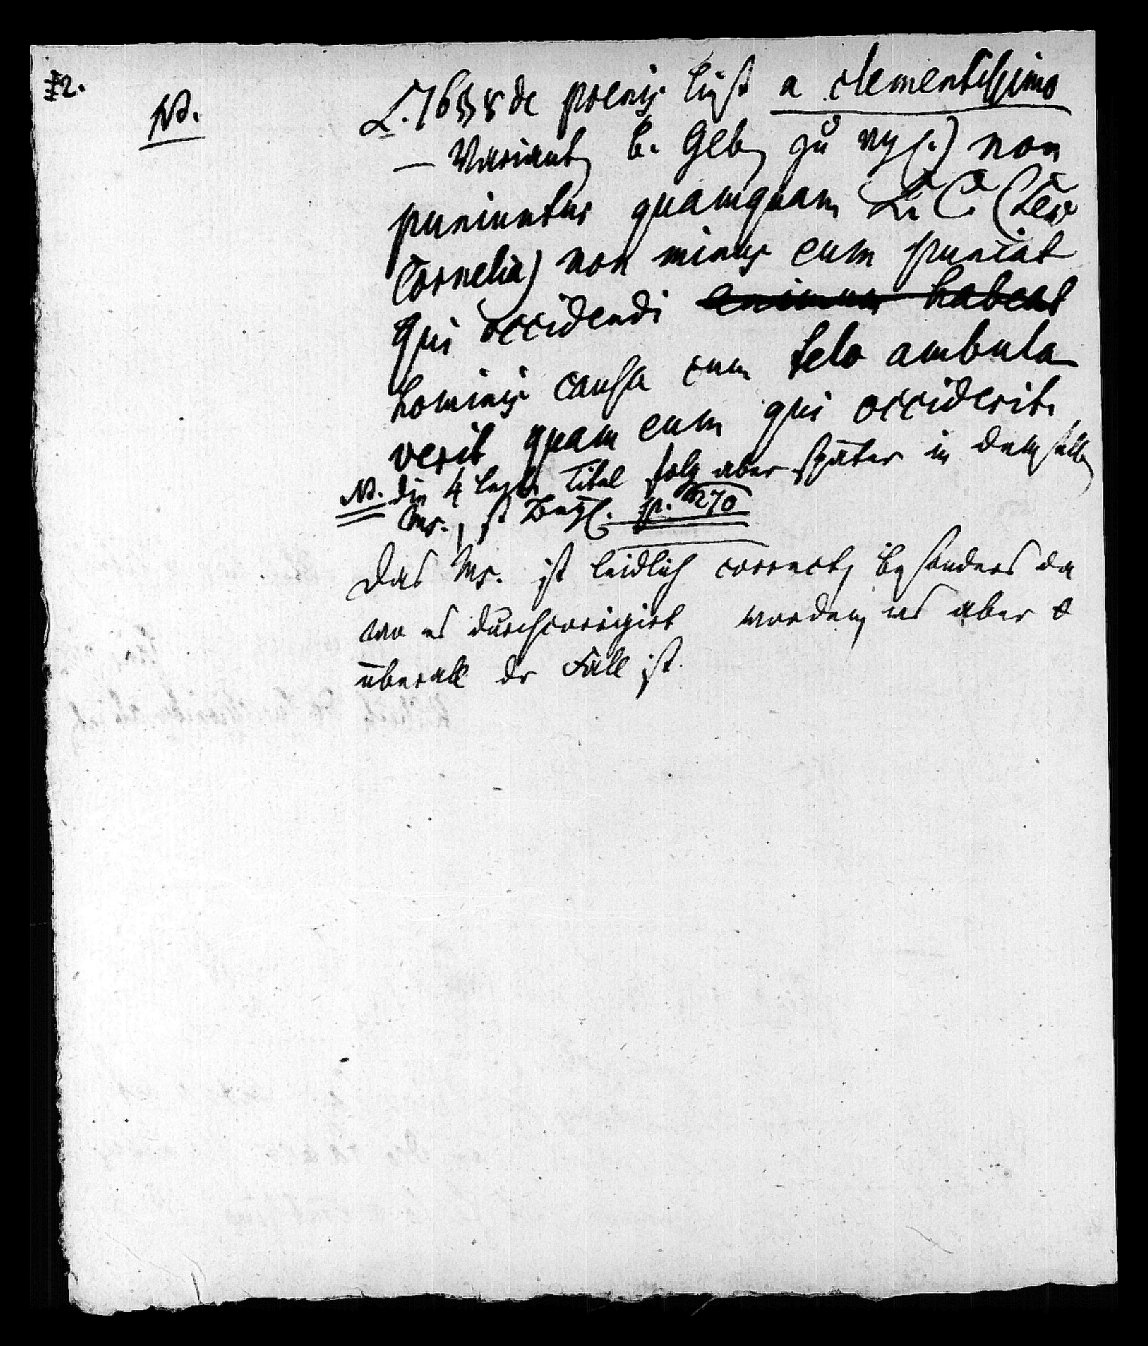 12.
NB.
L. 16 § 8 de poenis liest a clementissimo
– Varianten b. Geb. zu vgl.) non
puniuntur quamquam L. C. (Lex
Cornelia) non minus eum puniat
qui occidendi animum habeat
hominis causa cum telo ambula
verit quam eum qui occiderit.
NB. die 4 letzten Titel folgen aber später in demselben
Ms., s. p. 270
Das Ms. ist leidlich correct, besonders da
wo es durchcorrigirt worden, was aber
überall der Fall ist.